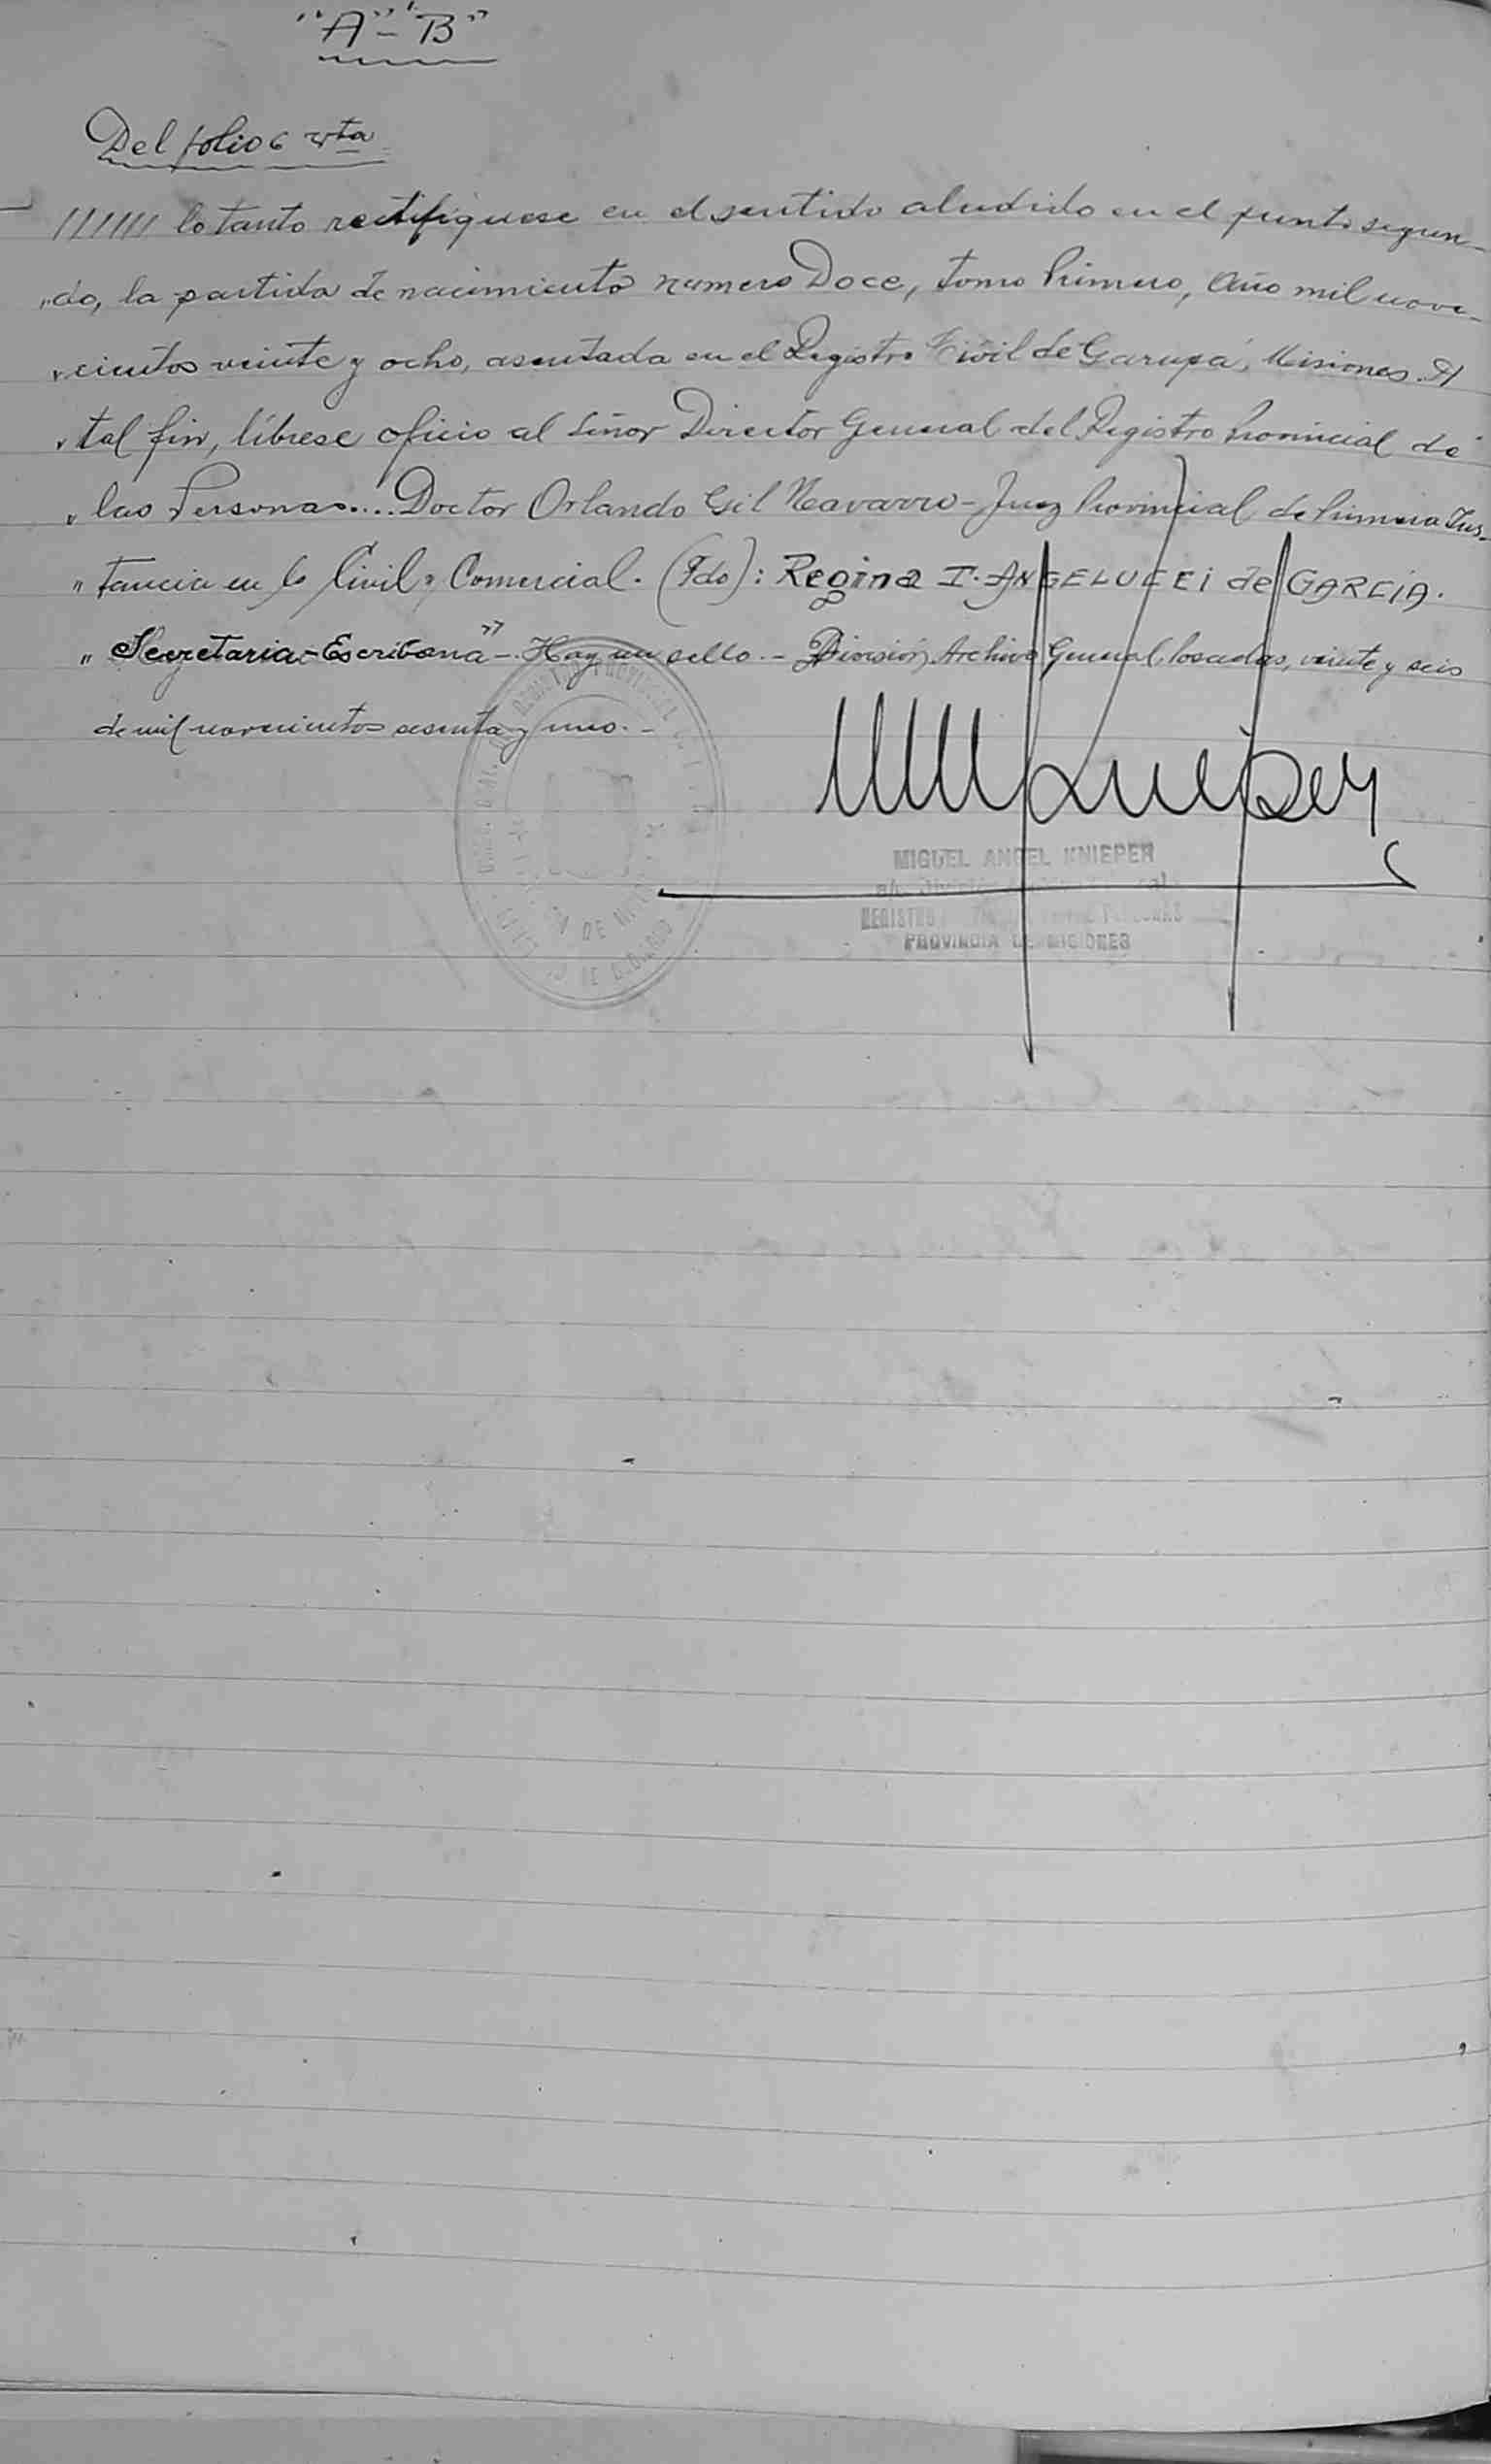 "A"-"B"
Del folio 6 vta
////// lo tanto rectifíquese en el sentido aludido en el punto segun-
"do, la partida de nacimiento número Doce, tomo Primero, Año mil nove-
"cientos veinte y ocho, asentada en el Registro Civil de Garupá, Misiones. A
"tal fin, líbrese oficio al Señor Director General del Registro Provincial de
"las Personas.... Doctor Orlando Gil Navarro - Juez Provincial de Primera Ins-
"tancia en lo Civil y Comercial. (Fdo): Regina I. ANGELUCCI de GARCÍA.
"Secretaria-Escribana"- Hay un sello.- División Archivo General, Posadas, veinte y seis
de mil novecientos sesenta y uno.-
MIGUEL ANGEL KNIEPER
REGISTRO
PROVINCIA DE MISIONES